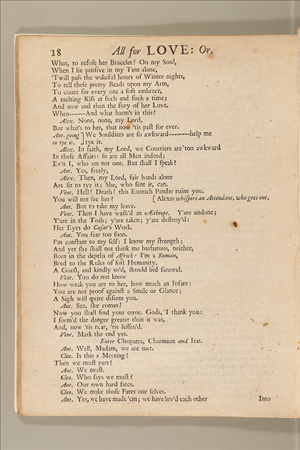 18 All for LOVE: Or,
What, to refuse her Bracelet! On my Soul,
When I lie pensive in my Tent alone,
'Twill pass the wakeful hours of Winter nights,
To tell these pretty Beads upon my Arm,
To count for every one a soft embrace,
A melting Kiss at such and such a time;
And now and then the fury of her Love.
When------And what harm's in this?
Alex. None, none, my Lord,
But what's to her, that now 'tis past for ever.
Ant. going } We Souldiers are so awkward--------help me
to tye it. } tye it.
Alex. In faith, my Lord, we Courtiers are too awkward
In these Affairs: so are all Men indeed;
Ev'n I, who am not one. But shall I speak?
Ant. Yes, freely,
Alex. Then, my Lord, fair hands alone
Are fit to tye it; She, who sent it, can.
Vent. Hell! Death! this Eunuch Pandar ruins you.
You will not see her? [Alexas whispers an Attendant, who goes out.
Ant. But to take my leave.
Vent. Then I have wash'd an Æthiope. Y'are undone;
Y'are in the Toils; y'are taken; y'are destroy'd:
Her Eyes do Cæsar's Work.
Ant. You fear too soon.
I'm constant to my self: I know my strength;
And yet she shall not think me barbarous, neither,
Born in the depths of Africk: I'm a Roman,
Bred to the Rules of soft Humanity.
A Guest, and kindly us'd, should bid farewel.
Vent. You do not know
How weak you are to her, how much an Infant:
You are not proof against a Smile or Glance;
A Sigh will quite disarm you.
Ant. See, she comes!
Now you shall find your error. Gods, I thank you:
I form'd the danger greater than it was,
And, now 'tis near, 'tis lessen'd.
Vent. Mark the end yet.
Enter Cleopatra, Charmion and Iras.
Ant. Well, Madam, we are met.
Cleo. Is this a Meeting?
Then we must part?
Ant. We must.
Cleo. Who says we must?
Ant. Our own hard fates.
Cleo. We make those Fates our selves.
Ant. Yes, we have made 'em; we have lov'd each other
Into